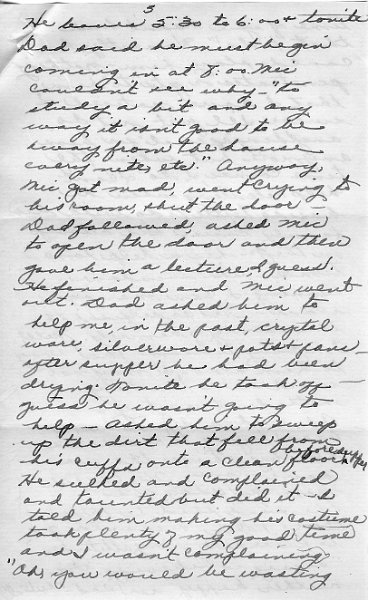 3
He leaves 5:30 to 6:00 & tonite
Dad said he must begin
coming in at 8:00. Mic
couldn't see why - "to
study a bit and any
way it isn't good to be
away from the house
every nite, etc." Anyway,
Mic got mad, went crying to
his room, shut the door
Dad followed, asked Mic
to open the door and then
gave him a lecture, I guess.
He finished and Mic went
out. Dad asked him to
help me, in the past, crystal
ware, silverware & pots & pans -
after supper he had been
drying. Tonite he took off -
guess he wasn't going to
help - asked him to sweep
up the dirt that fell from
his cuffs onto a clean floor before supper
He sulked and complained
and taunted but did it - I
told him making his costume
took plenty of my good time
and I wasn't complaining
"Oh, you would be wasting